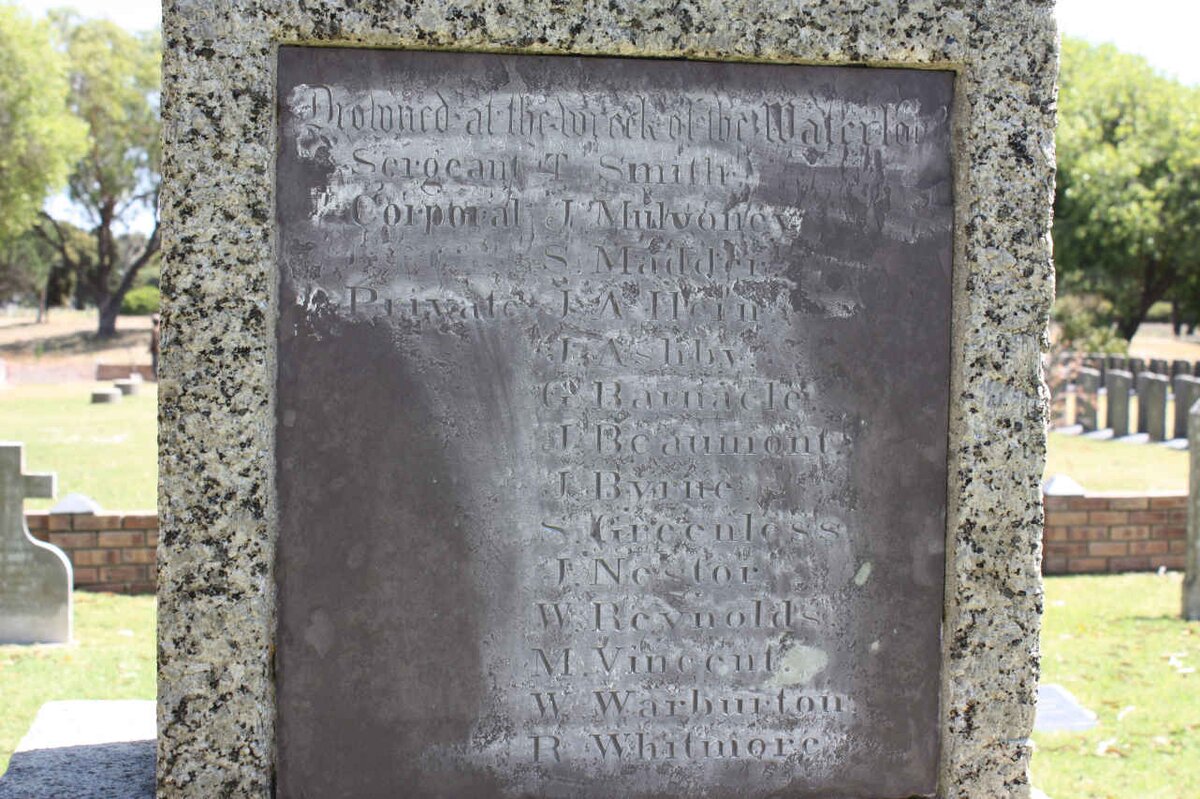 Drowned at the wreck of the Waterloo
Sergeant T. Smith
Corporal J. Mulvoney
S. Madder
Private J. A. Hein
J. Ashby
G. Barnacle
J. Beaumont
J. Byrne
S. Greenless
J. Nestor
W. Reynolds
M. Vincent
W. Warburton
R. Whitmore